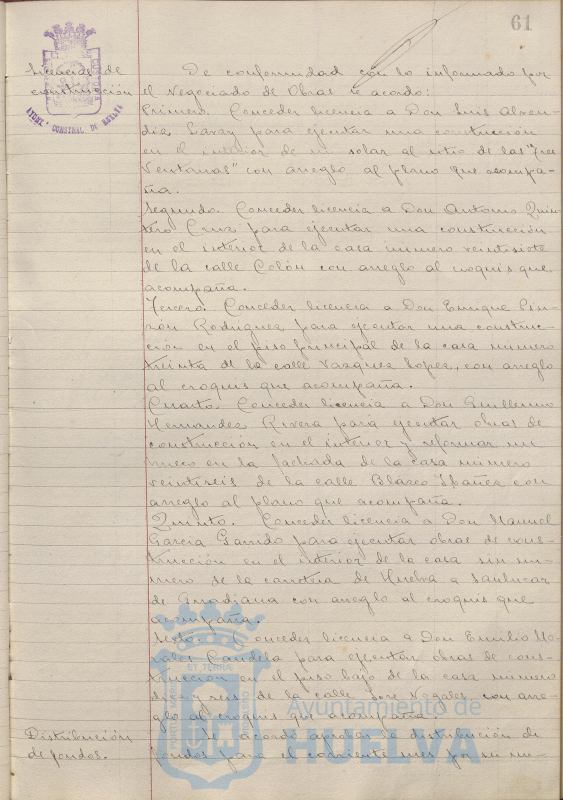 61
Licencias de construcción
De conformidad con lo informado por
el Negociado de Obras se acordó:
Primero. Conceder licencia a Don Luis
para ejecutar una construcción
en el interior de un solar al sitio de las "Tres
Ventanas" con arreglo al plano que acompa-
ña.
Segundo. Conceder licencia a Don Antonio Quin-
tero Cruz para ejecutar una construcción
en el interior de la casa numero veintisiete
de la calle Colón con arreglo al croquis que
acompaña.
Tercero. Conceder licencia a Don Enrique Pin-
zón Rodriguez para ejecutar una construc-
ción en el piso principal de la casa numero
treinta de la calle Vazquez Lopez, con arreglo
al croquis que acompaña.
Cuarto. Conceder licencia a Don Guillermo
Hernandez Rivera para ejecutar obras de
construcción en el interior y reformar un
hueco en la fachada de la casa número
veintiseis de la calle Blasco Ibañez con
arreglo al plano que acompaña.
Quinto. Conceder licencia a Don Manuel
Garcia Garrido para ejecutar obras de cons-
trucción en el interior de la casa sin nú-
mero de la carretera de Huelva a Sanlucar
de Guadiana con arreglo al croquis que
acompaña.
Sexto. Conceder licencia a Don Emilio Mo-
rales Candela para ejecutar obras de cons-
trucción en el piso bajo de la casa numero
diez y seis de la calle Jose Nogales con arre-
glo al croquis que acompaña.
Distribución de fondos.
Se acordó aprobar la distribución de
fondos para el corriente mes por un im-
Ayuntamiento de
HUELVA